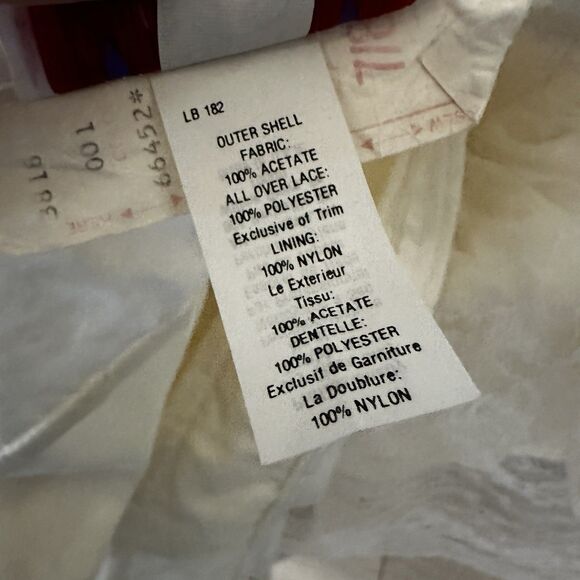 LB 182
OUTER SHELL
FABRIC:
100% ACETATE
ALL OVER LACE:
100% POLYESTER
Exclusive of Trim
LINING:
100% NYLON
Le Exterieur
Tissu:
100% ACETATE
DENTELLE:
100% POLYESTER
Exclusif de Garniture
La Doublure:
100% NYLON
66452*
001
7/8